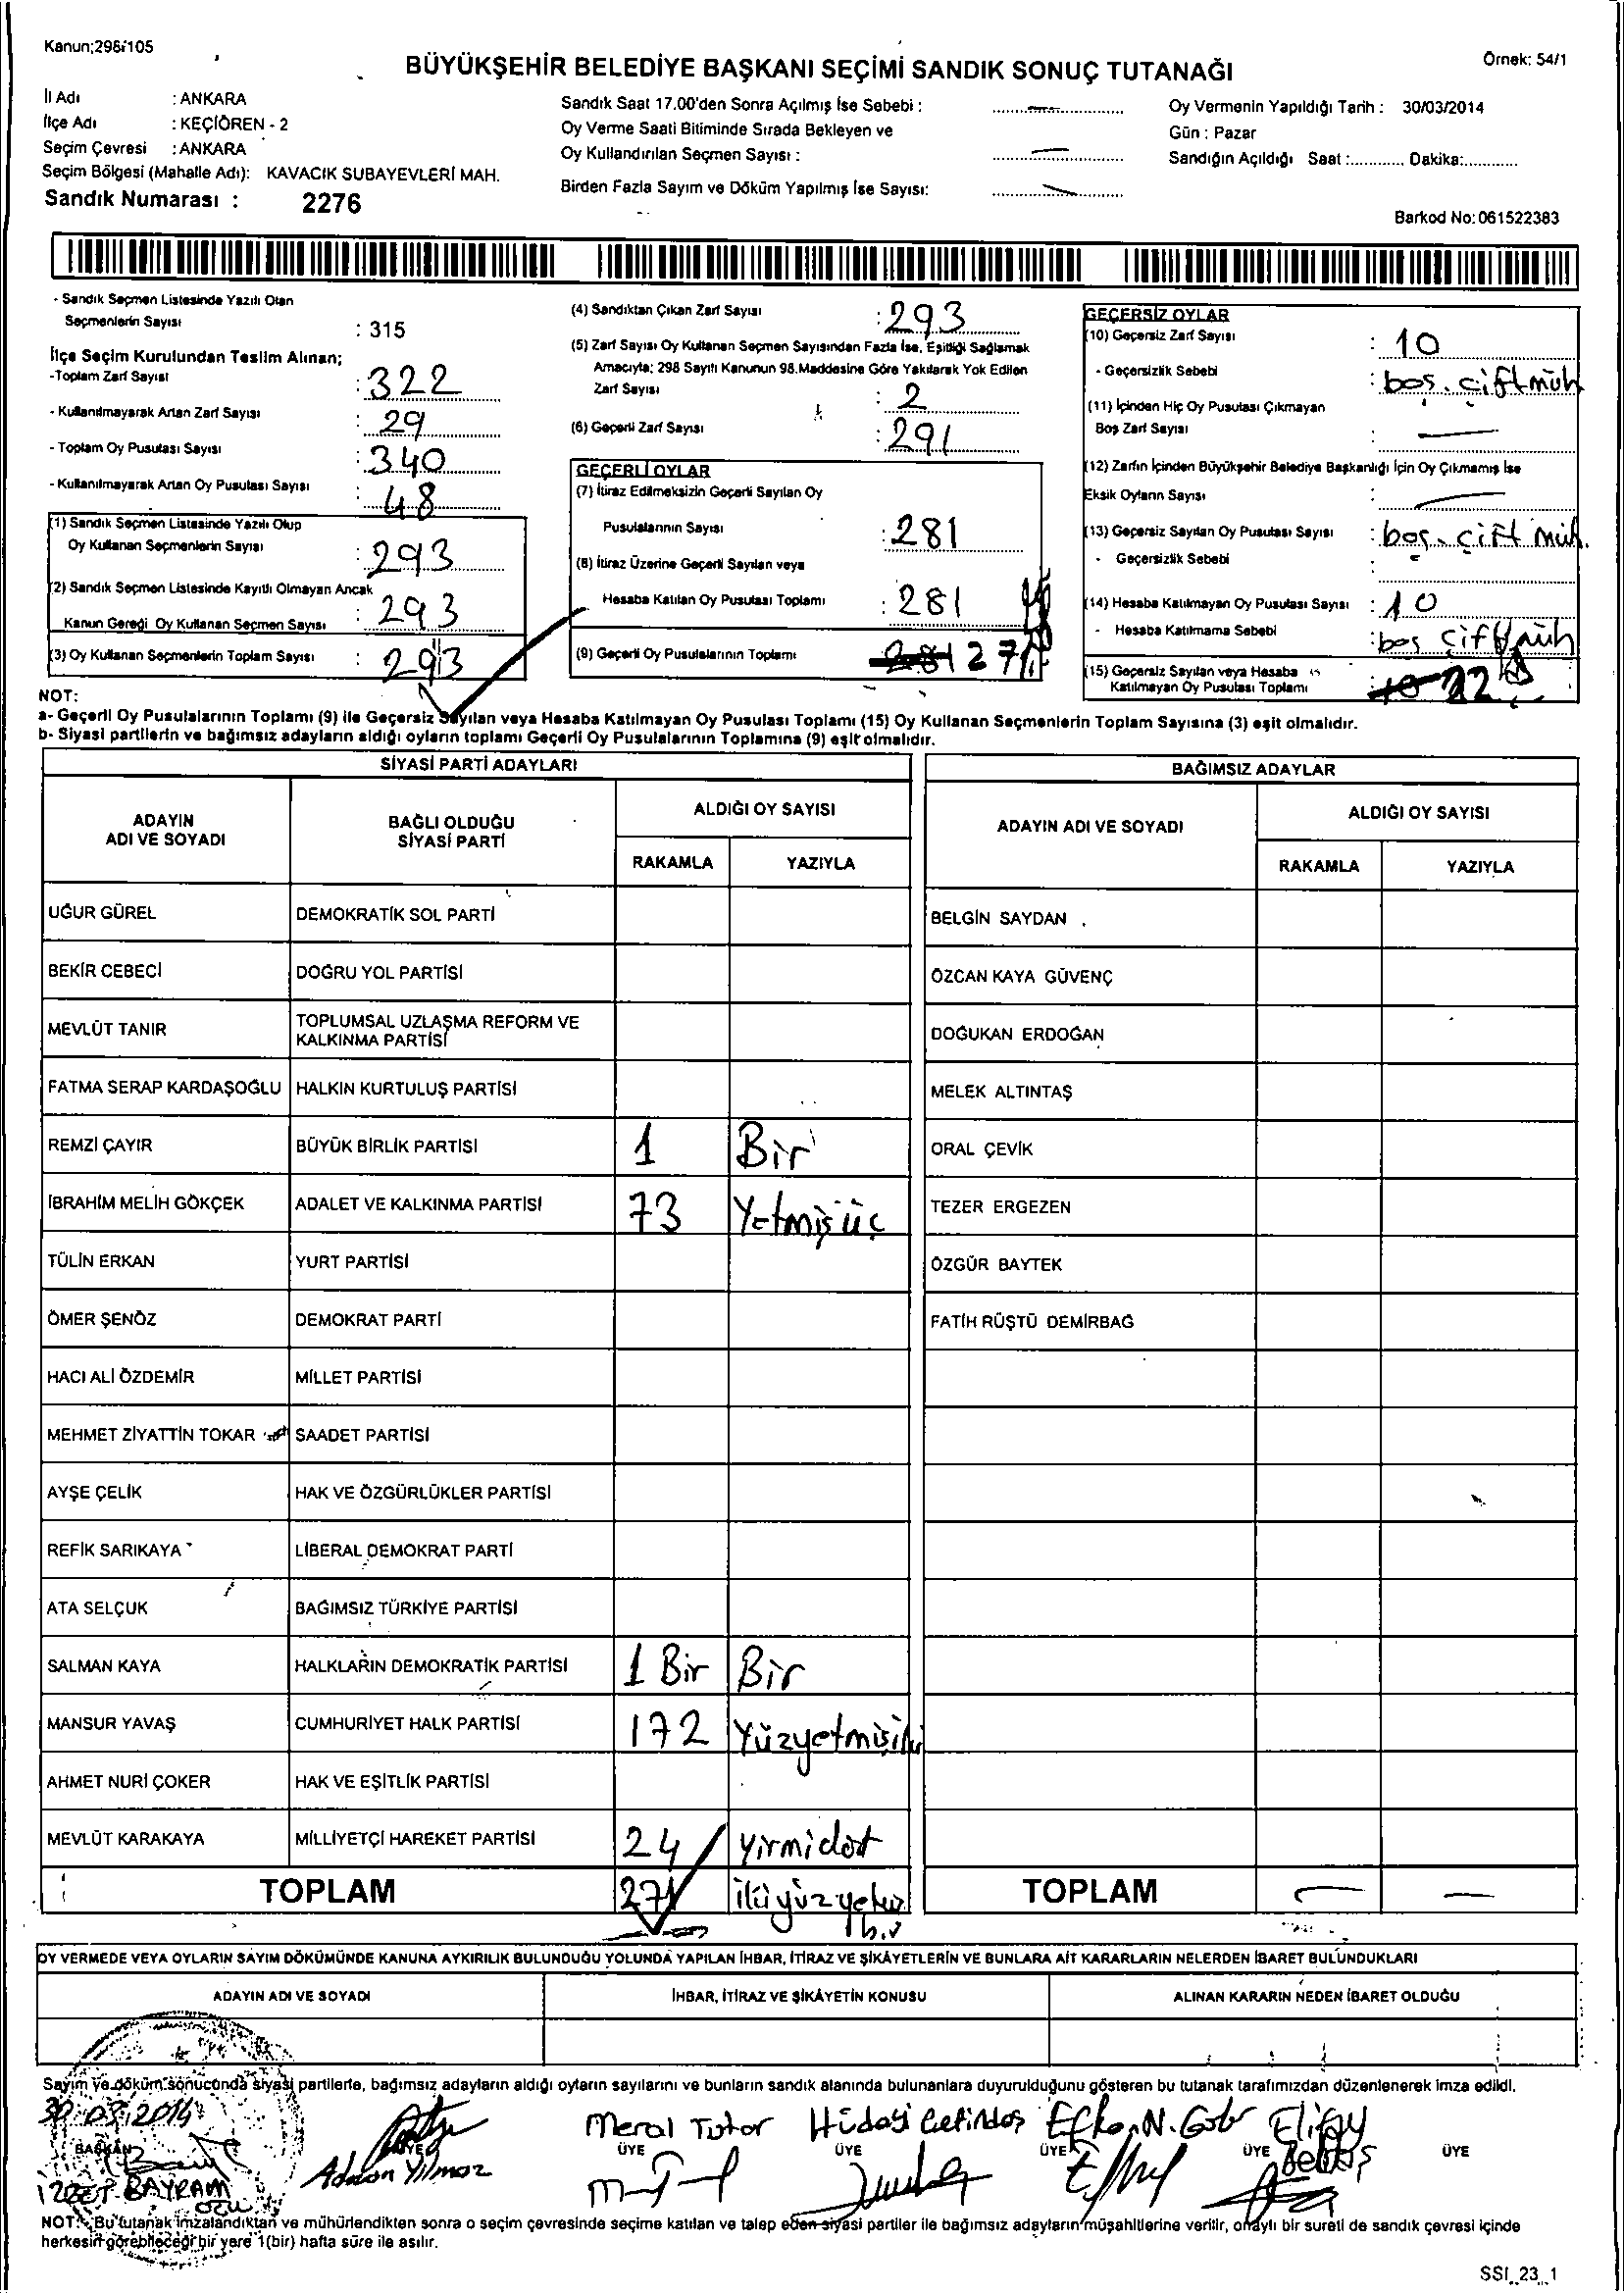 Kanun;298/105
Örnek: 54/1
BÜYÜKŞEHİR BELEDİYE BAŞKANI SEÇİMİ SANDIK SONUÇ TUTANAĞI
İl Adı : ANKARA
İlçe Adı : KEÇİÖREN - 2
Seçim Çevresi : ANKARA
Seçim Bölgesi (Mahalle Adı): KAVACIK SUBAYEVLERİ MAH.
Sandık Numarası : 2276
Sandık Saat 17.00'den Sonra Açılmış İse Sebebi :
Oy Verme Saati Bitiminde Sırada Bekleyen ve
Oy Kullandırılan Seçmen Sayısı :
Birden Fazla Sayım ve Döküm Yapılmış İse Sayısı:
Oy Vermenin Yapıldığı Tarih : 30/03/2014
Gün : Pazar
Sandığın Açıldığı Saat :............ Dakika:............
Barkod No: 061522383
- Sandık Seçmen Listesinde Yazılı Olan
Seçmenlerin Sayısı : 315
İlçe Seçim Kurulundan Teslim Alınan;
-Toplam Zarf Sayısı : 322
- Kullanılmayarak Artan Zarf Sayısı : 29
- Toplam Oy Pusulası Sayısı : 340
- Kullanılmayarak Artan Oy Pusulası Sayısı : 48
(1) Sandık Seçmen Listesinde Yazılı Olup
Oy Kullanan Seçmenlerin Sayısı : 293
(2) Sandık Seçmen Listesinde Kayıtlı Olmayan Ancak
Kanun Gereği Oy Kullanan Seçmen Sayısı : 293
(3) Oy Kullanan Seçmenlerin Toplam Sayısı : 293
(4) Sandıktan Çıkan Zarf Sayısı : 293
(5) Zarf Sayısı Oy Kullanan Seçmen Sayısından Fazla İse, Eşitliği Sağlamak
Amacıyla; 298 Sayılı Kanunun 98.Maddesine Göre Yakılarak Yok Edilen
Zarf Sayısı : 2
(6) Geçerli Zarf Sayısı : 291
GEÇERLİ OYLAR
(7) İtiraz Edilmeksizin Geçerli Sayılan Oy
Pusulalarının Sayısı : 281
(8) İtiraz Üzerine Geçerli Sayılan veya
Hesaba Katılan Oy Pusulası Toplamı : 281
(9) Geçerli Oy Pusulalarının Toplamı : 281 271
GEÇERSİZ OYLAR
(10) Geçersiz Zarf Sayısı : 10
- Geçersizlik Sebebi : boş. çift müh
(11) İçinden Hiç Oy Pusulası Çıkmayan
Boş Zarf Sayısı :
(12) Zarfın İçinden Büyükşehir Belediye Başkanlığı İçin Oy Çıkmamış İse
Eksik Oyların Sayısı :
(13) Geçersiz Sayılan Oy Pusulası Sayısı : boş. çift müh.
- Geçersizlik Sebebi
(14) Hesaba Katılmayan Oy Pusulası Sayısı : 10
- Hesaba Katılmama Sebebi : boş çift müh
(15) Geçersiz Sayılan veya Hesaba
Katılmayan Oy Pusulası Toplamı : 10 22
NOT:
a- Geçerli Oy Pusulalarının Toplamı (9) ile Geçersiz Sayılan veya Hesaba Katılmayan Oy Pusulası Toplamı (15) Oy Kullanan Seçmenlerin Toplam Sayısına (3) eşit olmalıdır.
b- Siyasi partilerin ve bağımsız adayların aldığı oyların toplamı Geçerli Oy Pusulalarının Toplamına (9) eşit olmalıdır.
SİYASİ PARTİ ADAYLARI
ADAYIN ADI VE SOYADI
BAĞLI OLDUĞU SİYASİ PARTİ
ALDIĞI OY SAYISI
RAKAMLA YAZIYLA
UĞUR GÜREL DEMOKRATİK SOL PARTİ
BEKİR CEBECİ DOĞRU YOL PARTİSİ
MEVLÜT TANIR TOPLUMSAL UZLAŞMA REFORM VE KALKINMA PARTİSİ
FATMA SERAP KARDAŞOĞLU HALKIN KURTULUŞ PARTİSİ
REMZİ ÇAYIR BÜYÜK BİRLİK PARTİSİ 1 Bir
İBRAHİM MELİH GÖKÇEK ADALET VE KALKINMA PARTİSİ 73 Yetmişüç
TÜLİN ERKAN YURT PARTİSİ
ÖMER ŞENÖZ DEMOKRAT PARTİ
HACI ALİ ÖZDEMİR MİLLET PARTİSİ
MEHMET ZİYATTİN TOKAR SAADET PARTİSİ
AYŞE ÇELİK HAK VE ÖZGÜRLÜKLER PARTİSİ
REFİK SARIKAYA LİBERAL DEMOKRAT PARTİ
ATA SELÇUK BAĞIMSIZ TÜRKİYE PARTİSİ
SALMAN KAYA HALKLARIN DEMOKRATİK PARTİSİ 1 Bir Bir
MANSUR YAVAŞ CUMHURİYET HALK PARTİSİ 172 Yüzyetmişiki
AHMET NURİ ÇOKER HAK VE EŞİTLİK PARTİSİ
MEVLÜT KARAKAYA MİLLİYETÇİ HAREKET PARTİSİ 24 Yirmidört
TOPLAM 271
BAĞIMSIZ ADAYLAR
ADAYIN ADI VE SOYADI
ALDIĞI OY SAYISI
RAKAMLA YAZIYLA
BELGİN SAYDAN
ÖZCAN KAYA GÜVENÇ
DOĞUKAN ERDOĞAN
MELEK ALTINTAŞ
ORAL ÇEVİK
TEZER ERGEZEN
ÖZGÜR BAYTEK
FATİH RÜŞTÜ DEMİRBAĞ
TOPLAM
OY VERMEDE VEYA OYLARIN SAYIM DÖKÜMÜNDE KANUNA AYKIRILIK BULUNDUĞU YOLUNDA YAPILAN İHBAR, İTİRAZ VE ŞİKAYETLERİN VE BUNLARA AİT KARARLARIN NELERDEN İBARET BULUNDUKLARI
ADAYIN ADI VE SOYADI İHBAR, İTİRAZ VE ŞİKÂYETİN KONUSU ALINAN KARARIN NEDEN İBARET OLDUĞU
Sayım ve döküm sonucunda siyasi partilerle, bağımsız adayların aldığı oyların sayılarını ve bunların sandık alanında bulunanlara duyurulduğunu gösteren bu tutanak tarafımızdan düzenlenerek imza edildi.
30.03.2014
Meral Tutor Hüdayi
BAŞKAN ÜYE ÜYE ÜYE ÜYE ÜYE ÜYE
BAYRAM
Adnan Yılmaz
NOT: Bu tutanak imzalandıktan ve mühürlendikten sonra o seçim çevresinde seçime katılan ve talep eden siyasi partiler ile bağımsız adayların müşahitlerine verilir, onaylı bir sureti de sandık çevresi içinde
herkesin görebileceği bir yere 1(bir) hafta süre ile asılır.
SSI_23_1